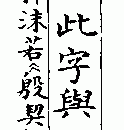 此字與
沫若《殷契